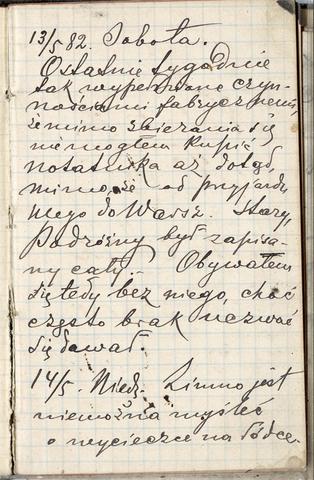 13/5 82. Sobota.
Ostatnie tygodnie
tak wypełnione czyn-
nościami fabrycznemi,
że mimo zbierania się
nie mogłem kupić
notatnika aż dotąd,
mimo, że od przyjazdu
mego do Warsz. Stary,
Podróżny był zapisa-
ny cały. Obywałem
się tedy bez niego, choć
często brak uczuwać
się dawał.
14/5 - Niedz. Zimno jest
niemożna myśleć
o wycieczce na łódce.